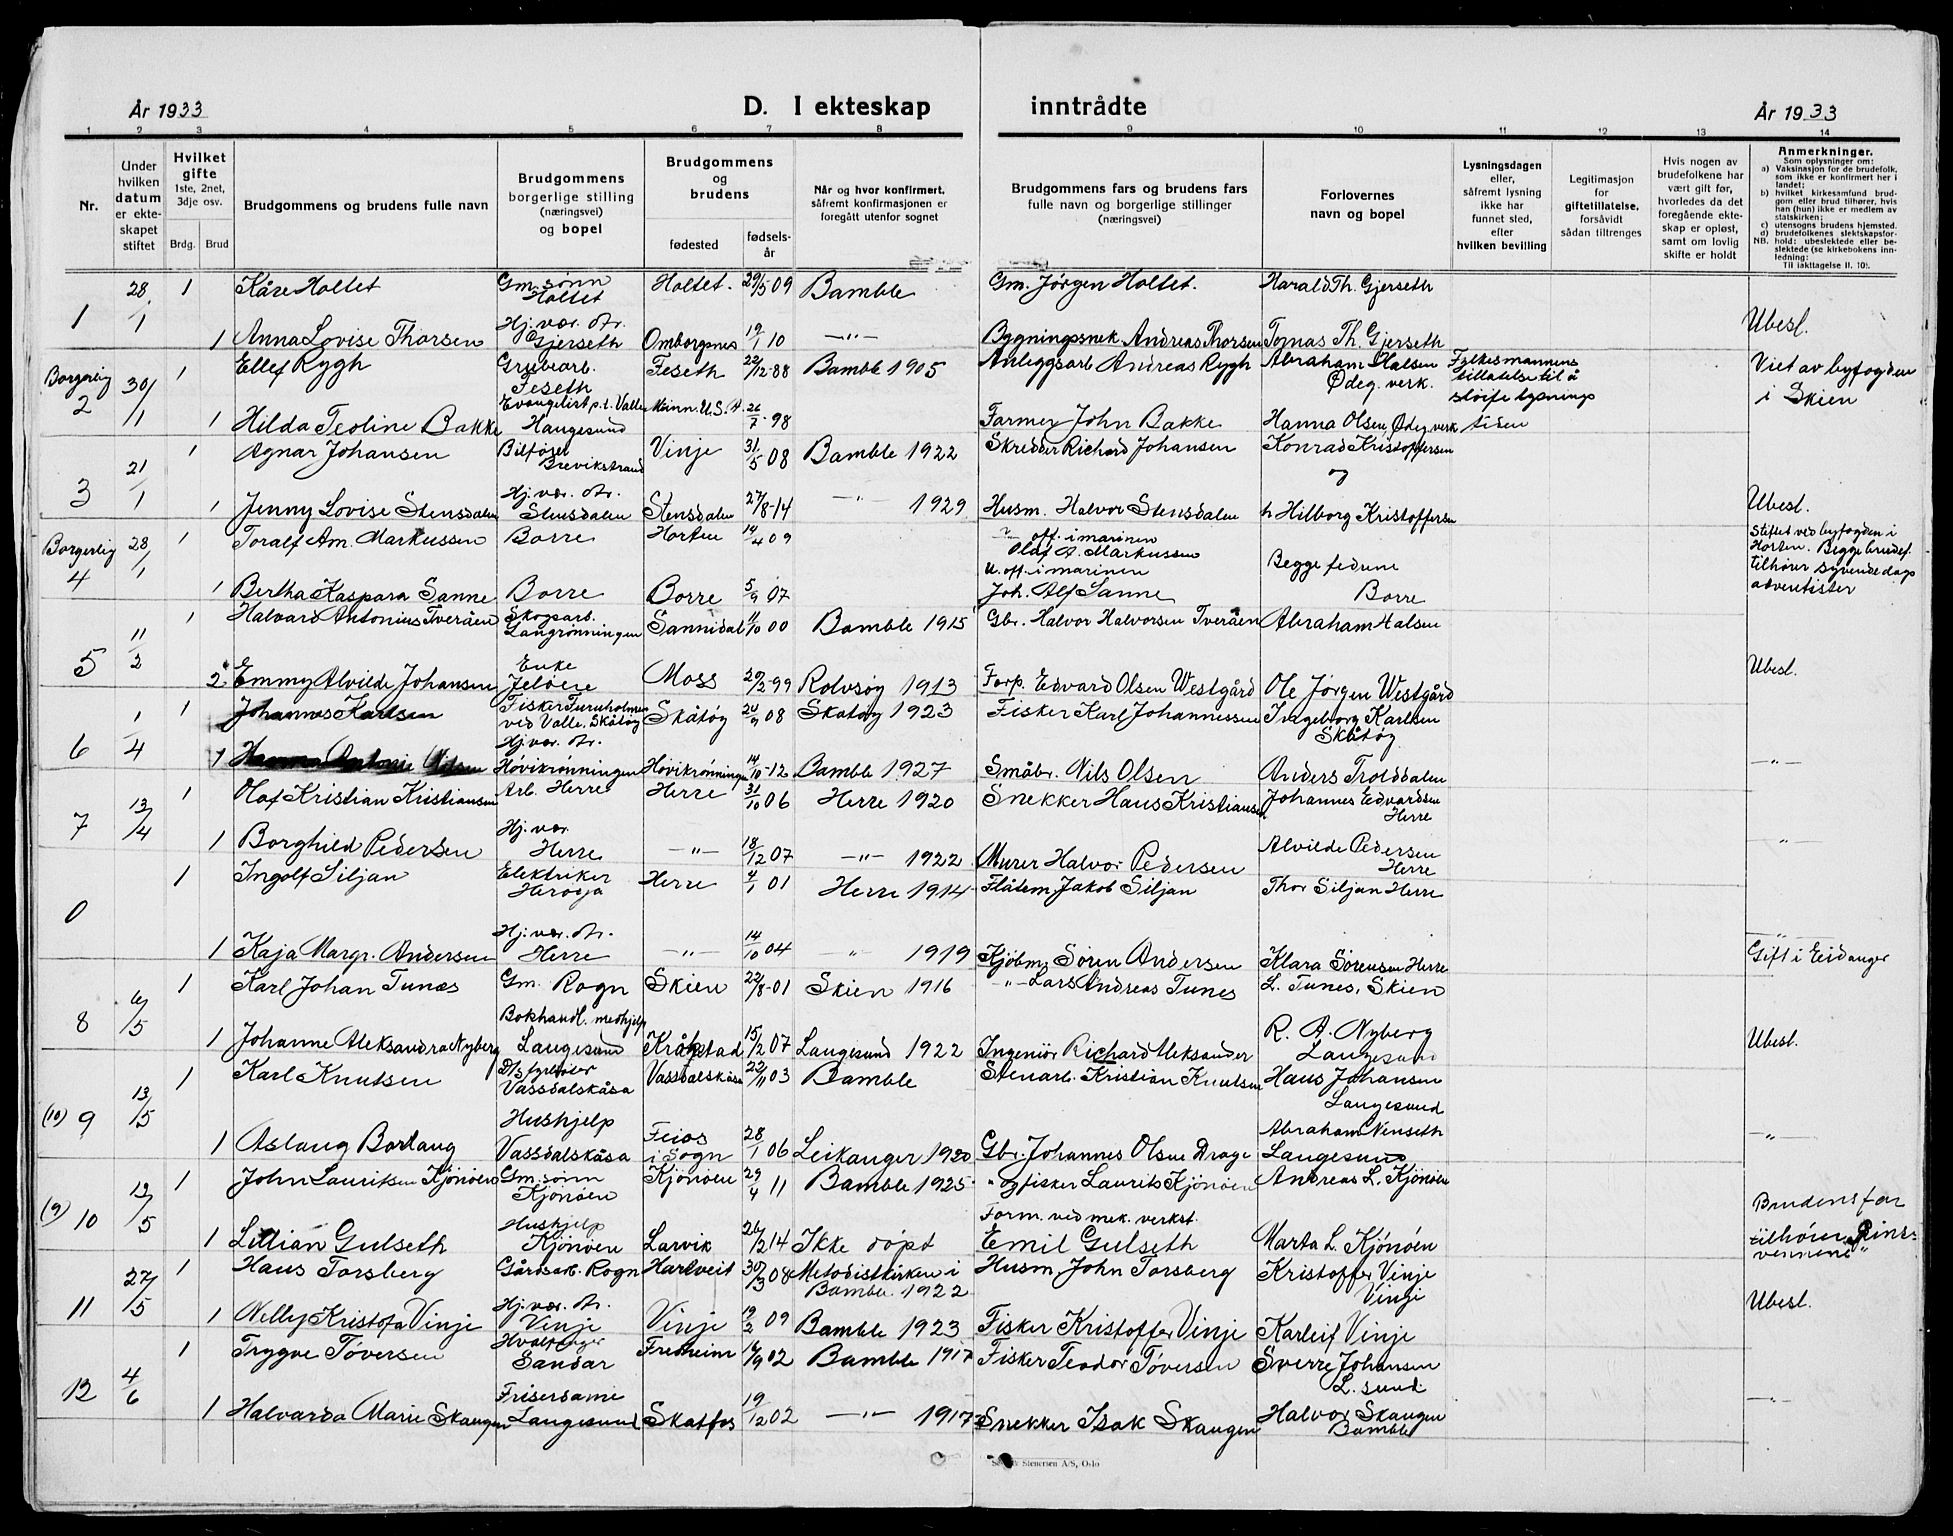 År 1933
D. I ekteskap inntrådte
År 1933
1 2 3 4 5 6 7 8 9 10 11 12 13 14
Nr.
Under hvilken datum er ekteskapet stiftet
Hvilket gifte 1ste, 2net, 3dje osv.
Brdg. Brud
Brudgommens og brudens fulle navn
Brudgommens borgerlige stilling (næringsvei) og bopel
Brudgommens og brudens
fødested
fødselsår
Når og hvor konfirmert, såfremt konfirmasjonen er foregått utenfor sognet
Brudgommens fars og brudens fars fulle navn og borgerlige stillinger (næringsvei)
Forlovernes navn og bopel
Lysningsdagen eller, såfremt lysning ikke har funnet sted, efter hvilken bevilling
Legitimasjon for giftetillatelse, forsåvidt sådan tiltrenges
Hvis nogen av brudefolkene har vært gift før, hvorledes da det foregående ekteskap er opløst, samt om lovlig skifte er holdt
Anmerkninger.
Som oplysninger om:
a) Vaksinasjon for de brudefolk, som ikke er konfirmert her i landet;
b) hvilket kirkesamfund brudgom eller brud tilhører, hvis han (hun) ikke er medlem av statskirken;
c) utensogns brudens hjemsted.
d) brudefolkenes slektskapsforhold: ubeslektede eller beslektede (se kirkebokens innledning:
NB. Til iakttagelse II. 10).
1 28/1 1 Kåre Holtet Gm.sønn Holtet Holtet. 29/5 09 Bamble Gm. Jørgen Holtet. Harald Th. Gjerseth
1 Anna Lovise Thorsen Hj. vær. dtr. Gjerseth Omborgsnes 19/1 10 -"- Bygningssnek. Andreas Thorsen Tomas Th. Gjerseth Ubesl.
Borgerlig 2 30/1 1 Ellef Rygh Grubearb. Feseth Feseth 22/12-88 Bamble 1905 Anleggsarb Andreas Rygh Abraham Olsen Ødeg. verk. Fylkesmannens tillatelse til å sløife lysningstiden Viet av byfogden i Skien
1 Hilda Teoline Bakke Evangelist p.t. Valle Haugesund Minn. U.S.A. 26/7-98 Farmer John Bakke Hanna Olsen, Ødeg. verk
3 21/1 1 Agnar Johansen Bilfører Brevikstrand Vinje 31/5 08 Bamble 1922 Skredder Richard Johansen Konrad Kristoffersen
1 Jenny Lovise Stensdalen Hj. vær. dtr. Stensdalen Stensdalen 27/8-14 -"- 1929 Husm. Halvor Stensdalen h Hilborg Kristoffersen Ubesl.
Borgerlig 4 28/1 1 Toralf Am. Markussen Borre Horten 14/4 09 off. i marinen Olaf A. Markussen Begge fedrene Borre Stiftet ved byfogden i Horten. Begge brudef. tilhører syvendedags adventister
1 Bertha Kaspara Sanne Borre Borre 5/9 07 U. off. i marinen Joh. Alf Sanne
5 11/2 1 Halvard Antonius Tveråen Skogsarb. Langrønningen Sannidal 11/10 00 Bamble 1915 Gbr. Halvor Halvorsen Tveråen Abraham Halsen
2 Emmy Alvilde Johansen Enke Jeløen Moss 29/2 99 Rolvsøy 1913 Forp. Edvard Olsen Westgård Ole Jørgen Westgård Ubesl.
6 1/4 1 Johannes Karlsen Fisker Furuholmen ved Valle. Skåtøy Skåtøy 24/9 08 Skåtøy 1923 Fisker Karl Johannessen Ingeborg Karlsen Skåtøy
1 Antonie Nilsen Hj. vær. dtr. Høvikrønningen Høvikrønningen 14/10-12 Bamble 1927 Småbr. Nils Olsen Anders Trolddalen -"-
7 13/4 1 Olaf Kristian Kristiansen Arb. Herre Herre 31/10 06 Herre 1920 Snekker Hans Kristiansen Johannes Edvardsen Herre
1 Borghild Pedersen Hj. vær Herre -"- 18/12 07 -"- 1922 Murer Halvor Pedersen Alvilde Pedersen Herre -"-
0 1 Ingolf Siljan Elektriker Herøya Herre 4/1 01 Herre 1914 Fløtem. Jakob Siljan Thor Siljan Herre
1 Kaja Margr. Andersen Hj. vær. dtr. Herre -"- 14/10 04 -"- 1919 Kjøbm. Søren Andersen Klara Sørensen Herre -"- Gift i Eidanger
8 6/5 1 Karl Johan Tunes Gm. Rogn Skien 22/8-01 Skien 1916 -"- Lars Andreas Tunes L. Tunes, Skien
1 Johanne Aleksandra Nyberg Bokhandl. medhjelp Langesund Kråkstad 15/12 07 Langesund 1922 Ingeniør Richard Aleksander R. A. Nyberg Langesund Ubesl.
(10) 9 13/5 1 Karl Knutsen D/s fyrbøter Vassdalskåsa Vassdalskåsa 22/11 03 Bamble Stenarb. Kristian Knutsen Hans Johansen Langesund
1 Aslaug Borlaug Hushjelp Vassdalskåsa Feios i Sogn 28/1 06 Leikanger 1920 Gbr. Johannes Olsen Drage Abraham Nenseth Langesund -"-
(9) 10 12/5 1 John Lauritsen Kjønøen Gm.sønn Kjønøen Kjønøen 29/4 11 Bamble 1925 -"- og fisker Laurits Kjønøen Andreas L. Kjønøen
1 Lillian Gulseth Hushjelp Kjønøen Larvik 26/12 14 Ikke døpt Form. ved mek. verkst. Emil Gulseth Marta L. Kjønøen Brudens far tilhører "Pinsevennene"
11 27/5 1 Hans Torsberg Gårdsarb. Rogn Hartveit 30/3 08 Metodistkirken i Bamble 1922 Husm. John Torsberg Kristoffer Vinje Vinje
1 Nelly Kristofa Vinje Hj. vær. dtr. Vinje Vinje 19/2 09 Bamble 1923 Fisker Kristoffer Vinje Karleif Vinje Ubesl.
12 4/6 1 Trygve Tøversen Hvalfanger Sandar Fredheim 16/9 02 Bamble 1917 Fisker Teodor Tøversen Sverre Johansen L. sund
1 Halvarda Marie Skaugen Friserdame Langesund Skotfos 19/12 02 -"- 1917 Snekker Isak Skaugen Halvor Skaugen Bamble -"-
Stenersen A/S, Oslo